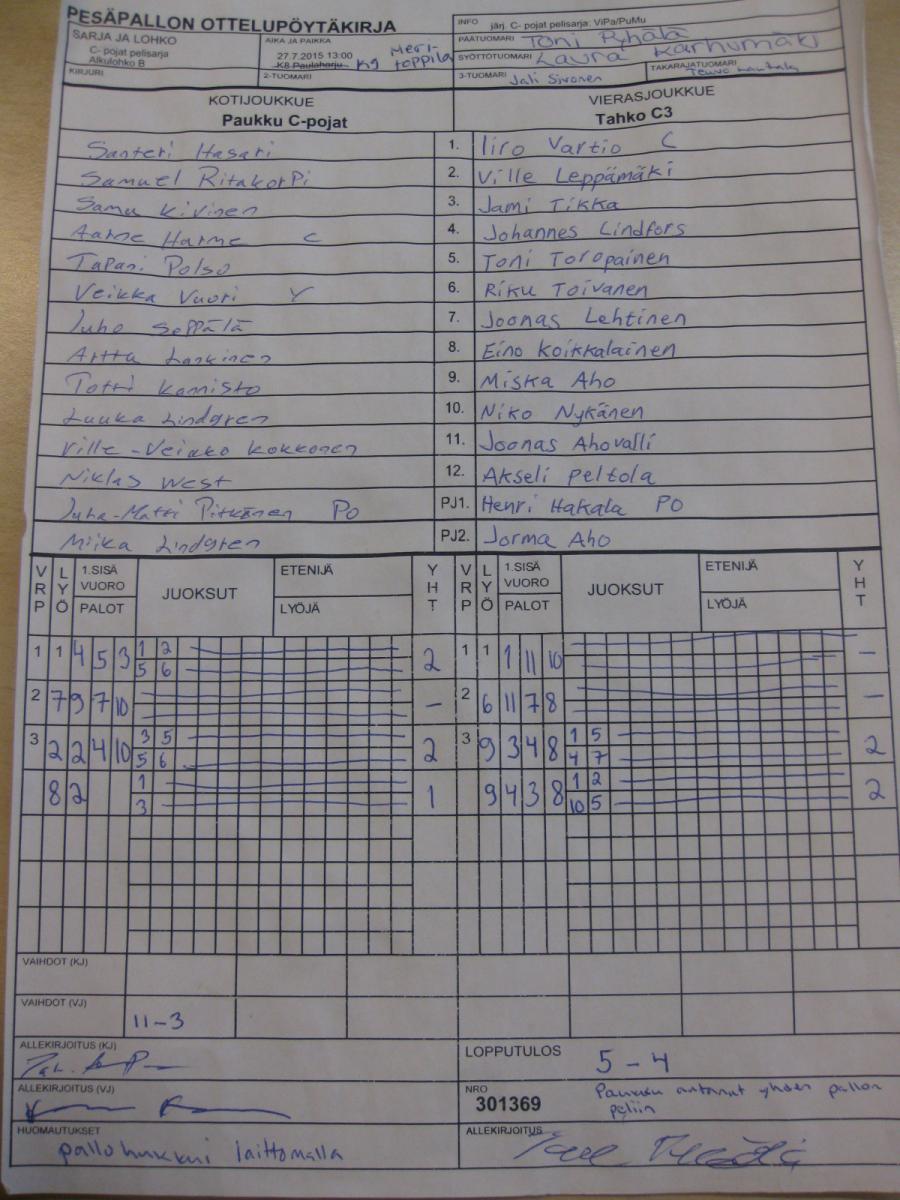 PESÄPALLON OTTELUPÖYTÄKIRJA
INFO järj. C- pojat pelisarja: ViPa/PuMu
SARJA JA LOHKO
C- pojat pelisarja
Alkulohko B
AIKA JA PAIKKA
27.7.2015 13:00
K8 Pauloharju K9 Meri-toppila
PÄÄTUOMARI Toni Ryhälä
SYÖTTÖTUOMARI Laura Karhumäki
KIRJURI
2-TUOMARI
3-TUOMARI Jali Sivonen
TAKARAJATUOMARI Teuvo
KOTIJOUKKUE
Paukku C-pojat
VIERASJOUKKUE
Tahko C3
Santeri Hasari 1. Iiro Vartio C
Samuel Ritakorpi 2. Ville Leppämäki
Samu Kivinen 3. Jami Tikka
Aarne Harme C 4. Johannes Lindfors
Tapani Polso 5. Toni Toropainen
Veikka Vuori V 6. Riku Toivanen
Juho Seppälä 7. Joonas Lehtinen
Arttu Laakinen 8. Eino Koikkalainen
Totti Kannisto 9. Miska Aho
Luuka Lindgren 10. Niko Nykänen
Ville-Veikko Kokkonen 11. Joonas Ahovalli
Niklas West 12. Akseli Peltola
Juha-Matti Pitkänen PO PJ1. Henri Hakala PO
Miika Lindgren PJ2. Jorma Aho
VRP LYÖ 1.SISÄ VUORO PALOT JUOKSUT ETENIJÄ LYÖJÄ YHT VRP LYÖ 1.SISÄ VUORO PALOT JUOKSUT ETENIJÄ LYÖJÄ YHT
1 1 4 5 3 1 2 2 1 1 1 11 10 –
5 6
2 7 9 7 10 – 2 6 11 7 8 –
3 2 2 4 10 3 5 2 3 9 3 4 8 1 5 2
5 6 4 7
8 2 1 1 9 4 3 8 1 2 2
3 10 5
VAIHDOT (KJ)
VAIHDOT (VJ)
11-3
ALLEKIRJOITUS (KJ)
LOPPUTULOS 5 - 4
ALLEKIRJOITUS (VJ)
NRO
301369
Paukku antanut yhden pallon peliin
HUOMAUTUKSET
pallo hukkui laittomalla
ALLEKIRJOITUS